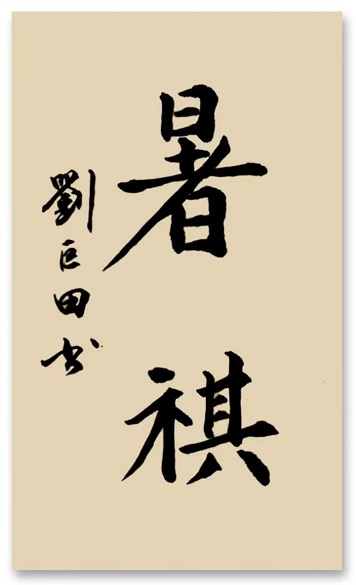 暑祺
劉巨田书